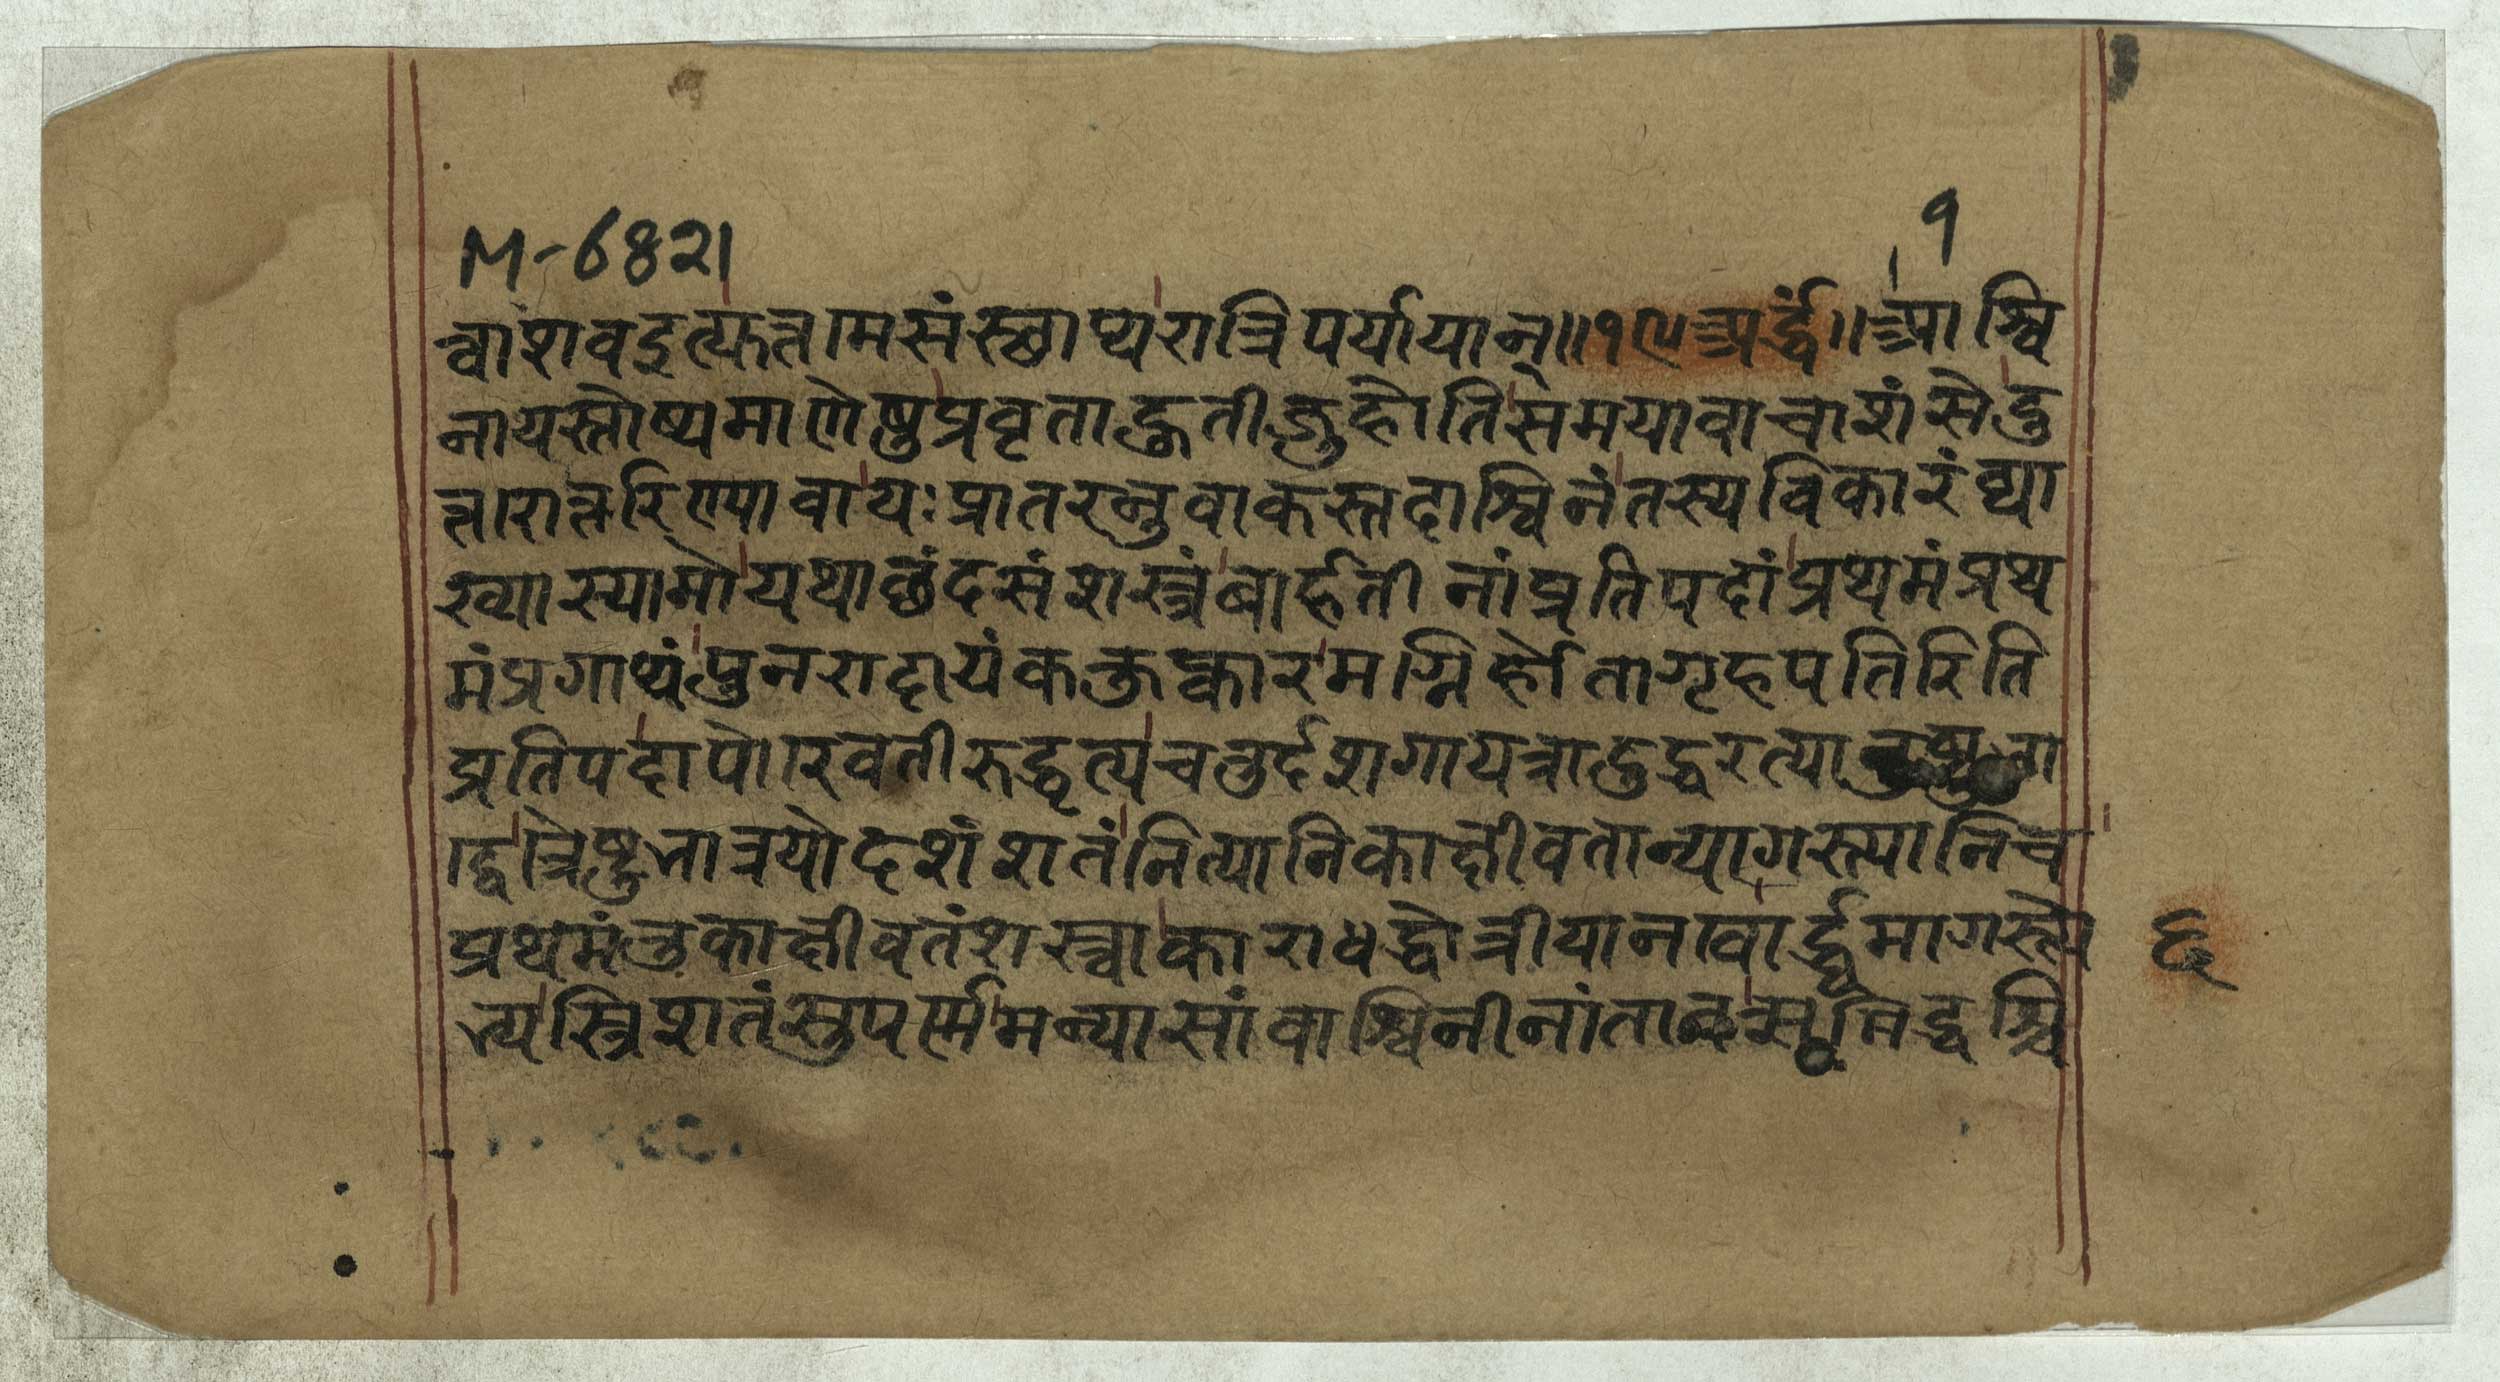 M-6821
१
त्वां शवदइत्यफत्नामसंस्छाप्यरात्रिपर्यायान्॥१९अर्द्धं॥आश्वि
नायस्तोष्यमाणेषुप्रवृताहुतीर्जुहोतिसमयावाचाशंसेहु
त्तारात्तरिण्यावायःप्रातरनुवाकस्तदाश्विनंतस्यविकारंव्या
ख्यास्यामोयथाछंदसंशस्त्रंबार्हतीनांप्रतिपदांप्रथमंप्रथ
मंप्रगाथंपुनरादायंककुप्कारमग्निर्होतागृहपतिरिति
प्रतिपदापोरेवतीरुद्धृत्यचतुर्दशगायत्रादुद्धरत्या
द्वेत्रैष्टुभात्रयोदशंशतंनित्यानिकाक्षीवतान्यागस्त्यानिच
प्रथमंतुकाक्षीवतंशस्त्वाकाराधद्धोत्रीयानावोर्द्ध्वमागस्त्ये
भ्यस्त्रिशतंसुपर्ण्णमन्यासांवाश्विनीनांताव
६